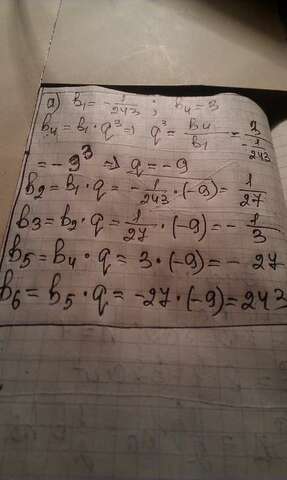 а) b₁ = -1/243 ; b₄ = 3
b₄ = b₁ · q³ ⇒ q³ = b₄/b₁ = 3/(-1/243)
= -9³ ⇒ q = -9
b₂ = b₁ · q = -1/243 · (-9) = 1/27
b₃ = b₂ · q = 1/27 · (-9) = -1/3
b₅ = b₄ · q = 3 · (-9) = -27
b₆ = b₅ · q = -27 · (-9) = 243